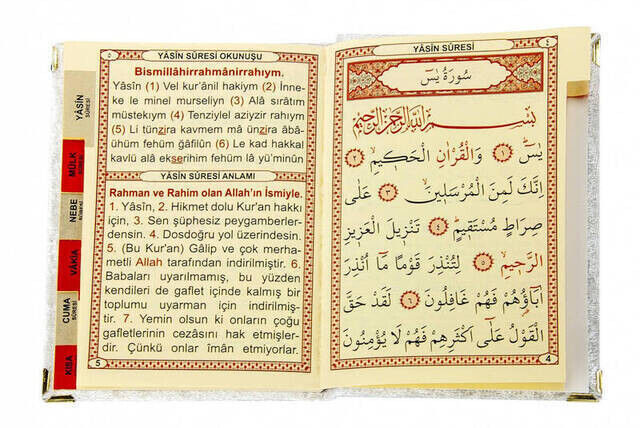 YÂSİN SÛRESİ OKUNUŞU
Bismillâhirrahmânirrahıym.
Yâsîn (1) Vel kur'ânil hakiym (2) İnne-
ke le minel murseliyn (3) Alâ sırâtım
müstekıym (4) Tenziylel aziyzir rahıym
(5) Li tünzira kavmem mâ ünzira âbâ-
ühüm fehüm ğâfilûn (6) Le kad hakkal
kavlü alâ ekserihim fehüm lâ yü'minûn
YÂSİN SÛRESİ ANLAMI
Rahman ve Rahim olan Allah'ın İsmiyle.
1. Yâsîn, 2. Hikmet dolu Kur'an hakkı
için, 3. Sen şüphesiz peygamberler-
densin. 4. Dosdoğru yol üzerindesin.
5. (Bu Kur'an) Gâlip ve çok merha-
metli Allah tarafından indirilmiştir. 6.
Babaları uyarılmamış, bu yüzden
kendileri de gaflet içinde kalmış bir
toplumu uyarman için indirilmiş-
tir. 7. Yemin olsun ki onların çoğu
gafletlerinin cezasını hak etmişler-
dir. Çünkü onlar îmân etmiyorlar.
5
YÂSİN SÛRESİ
MÜLK SÛRESİ
NEBE SÛRESİ
VÂKIA
CUMA SÛRESİ
KISA
YÂSİN SÛRESİ
٤
سُورَةُ يٰسٓ
بِسْمِ اللّٰهِ الرَّحْمٰنِ الرَّحٖيمِ
يٰسٓ ﴿١﴾ وَالْقُرْاٰنِ الْحَكٖيمِ ﴿٢﴾
اِنَّكَ لَمِنَ الْمُرْسَلٖينَ ﴿٣﴾ عَلٰى
صِرَاطٍ مُسْتَقٖيمٍ ﴿٤﴾ تَنْزٖيلَ الْعَزٖيزِ
الرَّحٖيمِ ﴿٥﴾ لِتُنْذِرَ قَوْمًا مَٓا اُنْذِرَ
اٰبَٓاؤُ۬هُمْ فَهُمْ غَافِلُونَ ﴿٦﴾ لَقَدْ حَقَّ
الْقَوْلُ عَلٰٓى اَكْثَرِهِمْ فَهُمْ لَا يُؤْمِنُونَ
4